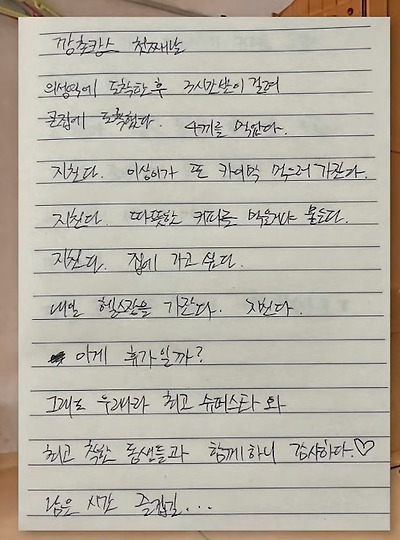 깡촌캉스 첫째날
의성역에 도착한후 3시간반이 걸려
큰집에 도착했다. 4끼를 먹었다.
지친다. 이상이가 또 카이막 먹으러 가잔다.
지친다. 따뜻한 커피를 먹을거냐 묻는다.
지친다. 집에 가고 싶다.
내일 헬스장을 가잔다. 지친다.
이게 휴가일까?
그래도 우리나라 최고 슈퍼스타와
최고 착한 동생들과 함께하니 감사하다.♡
남은 시간 즐겁길...